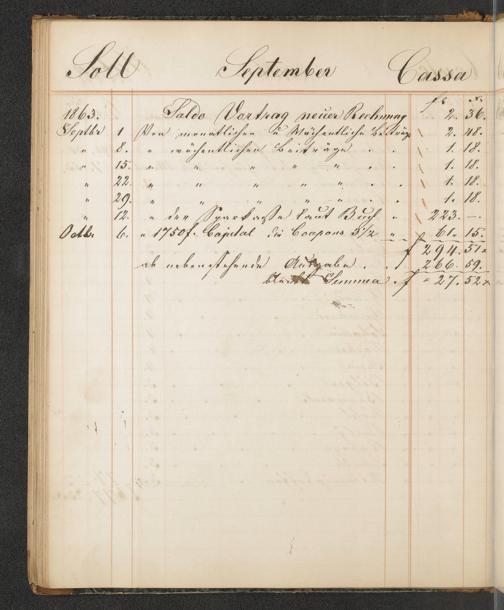 Soll September Cassa
f x.
1863. Saldo Vortrag neuer Rechnung 2. 36.
Septbr 1 Von monatlichen u Wöchentliche Beiträge 2. 48.
" 8. " wöchentlichen Beiträge . . 1. 18.
" 15. " " " " . 1. 18.
" 22. " " " " . . 1. 18.
" 29. " " " " . . 1. 18.
" 12. " der Sparkasse laut Buch . 223. —.
Octb. 6. " 1750f. Capital die Coupons 3 1/2 " f 61. 15.
f 294. 51x
ab nebenstehende Ausgabe . . f 266. 59.
bleibt Summa . f 27. 52x